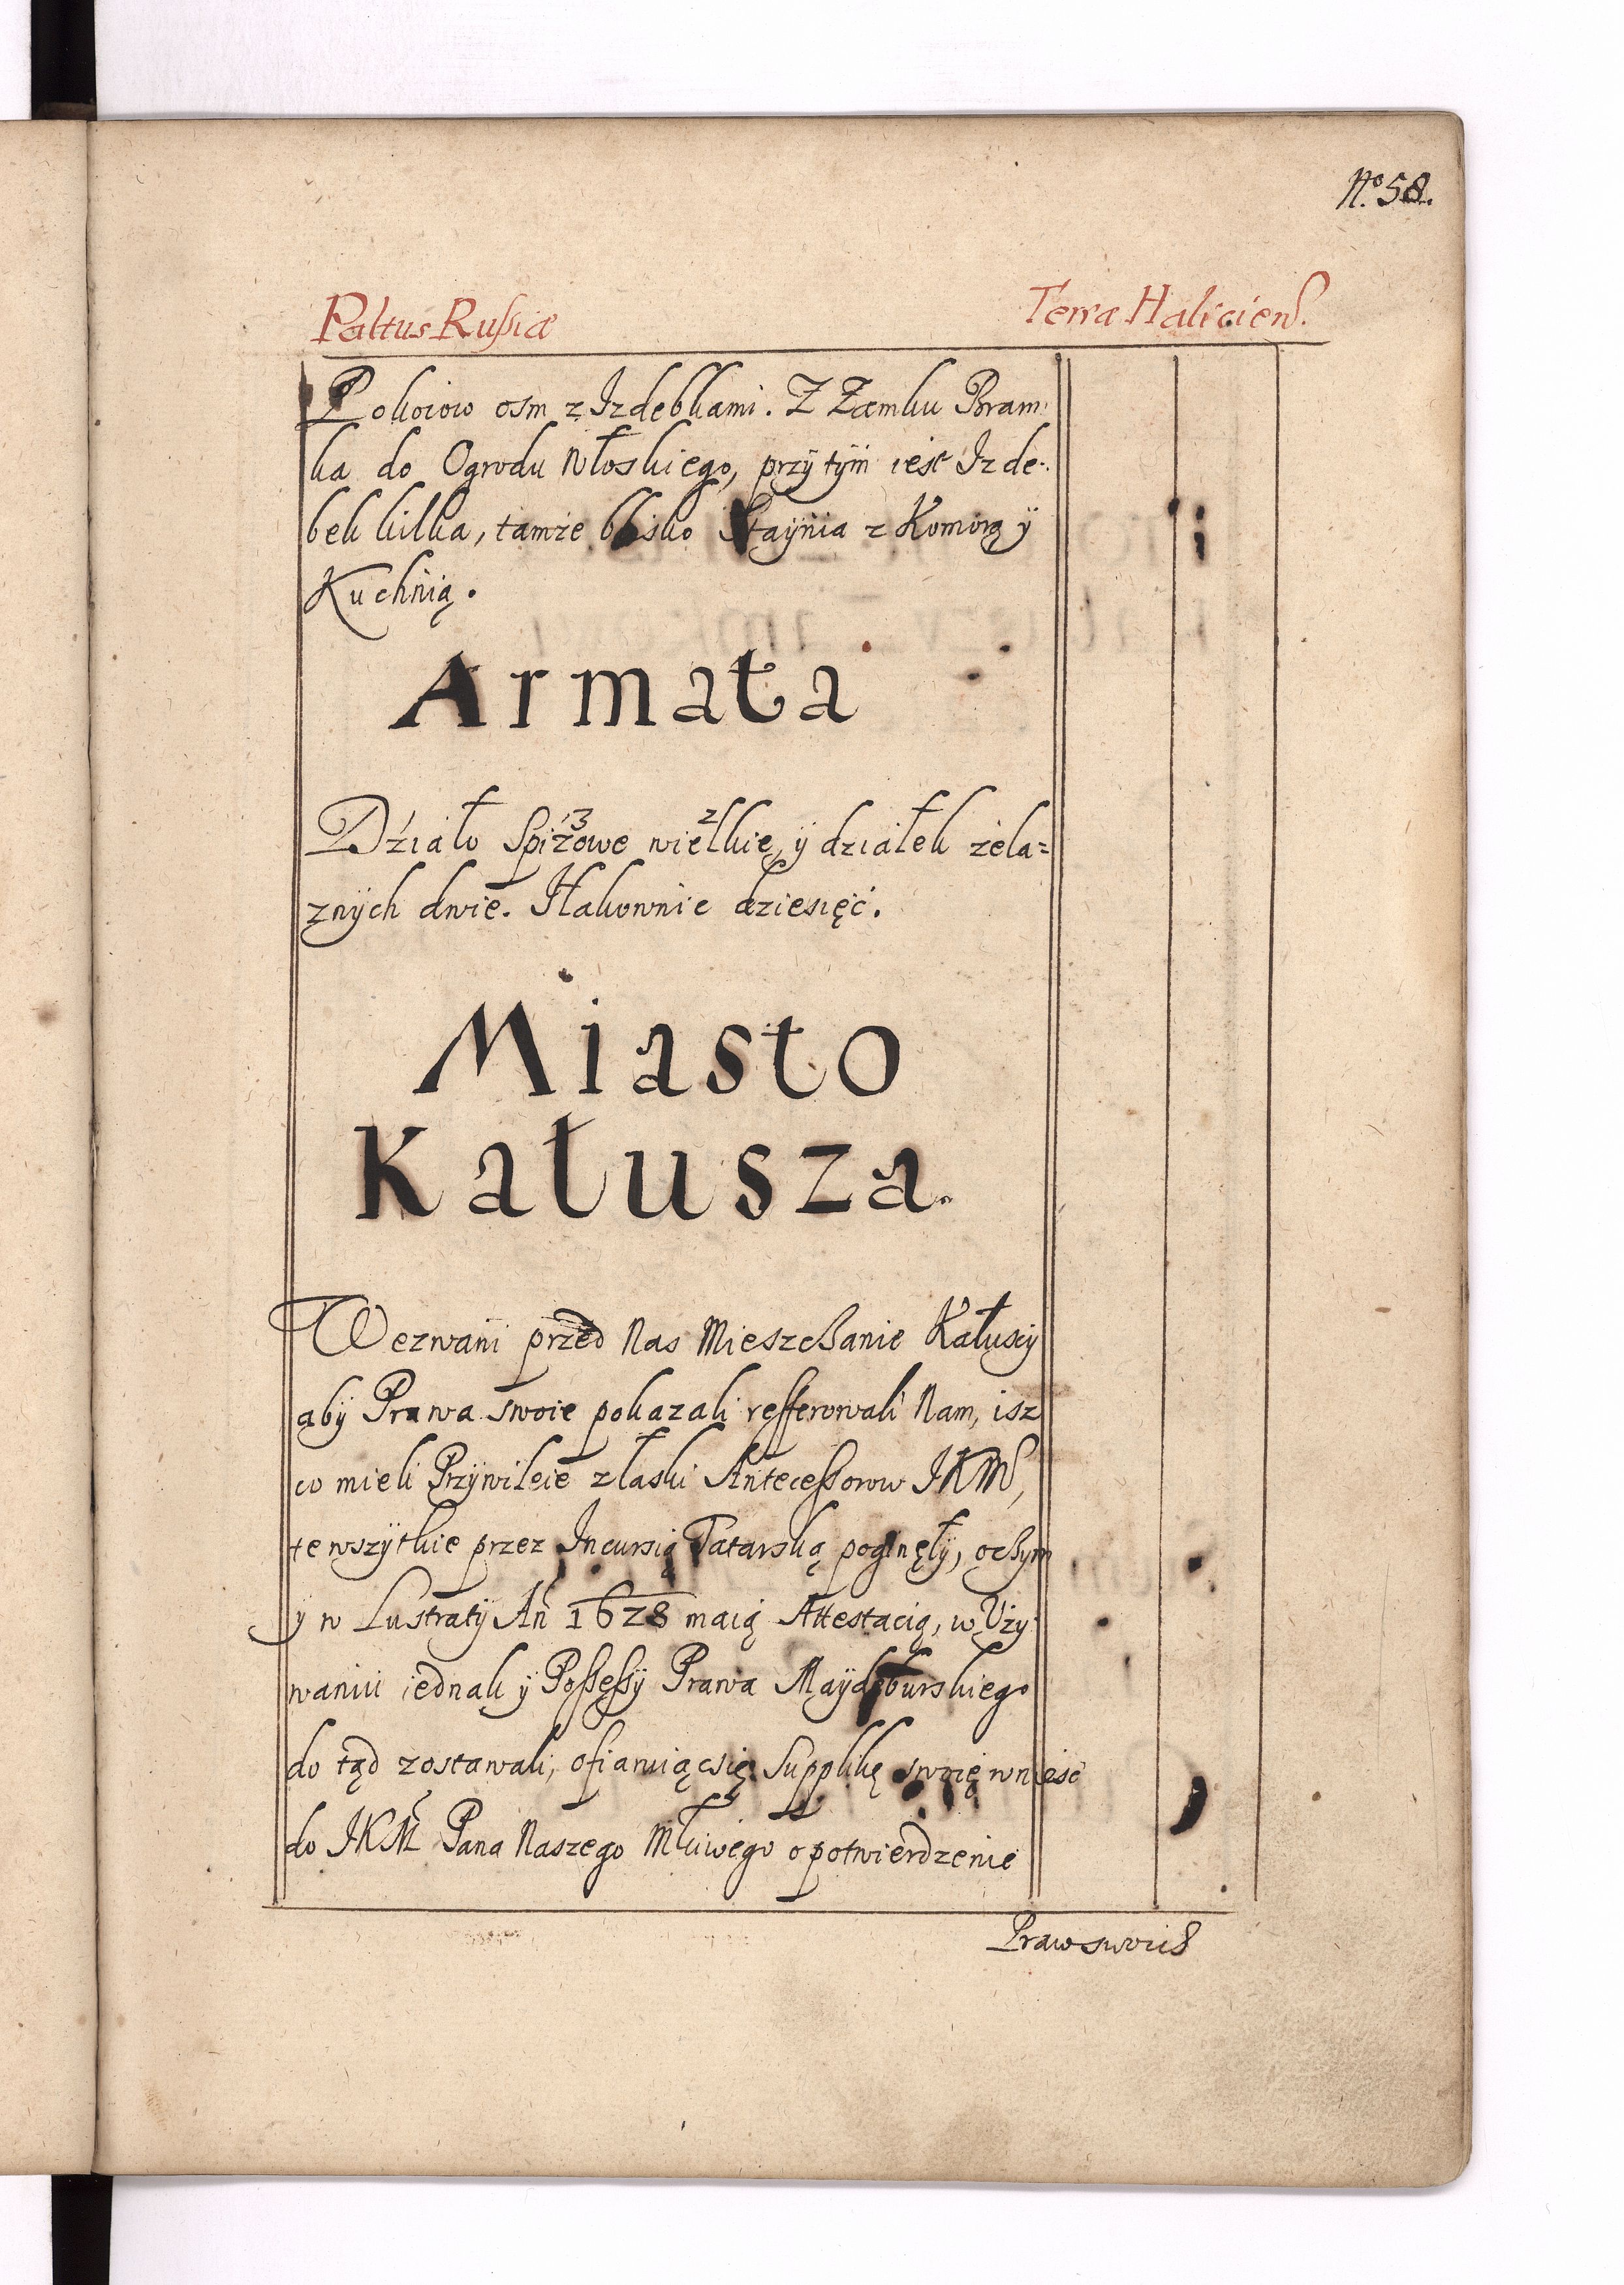 No. 58.
Paltus Russiæ Terræ Haliciens.
Pokoiow osm z Izdebkami. Z Zamku Bram-
ka do Ogrodu Włoskiego, przytÿm iest Izde-
bek kilka, tamże blisko Staÿnia z Komorą ÿ
Kuchnią.
Armata
Działo Spiżowe wielkie, ÿ działek żela=
znÿch dwie. Hakownic dziesięć.
Miasto
Kałusza.
Wezwani przed Nas Mieszczanie Kałuscÿ
abÿ Prawa swoie pokazali refferowali Nam, isz
co mieli Przÿwileie złaski Antecessorow IKM,
te wszÿtkie przez Incursią Tatarską poginęłÿ, oczym
ÿ w Lustratÿ An 1628 maią Attestacią, w Uży-
waniu iednak ÿ Possessÿ Prawa Maÿdeburskiego
do tąd zostawali, ofiaruiącsię Supplikę swoię wnieść
do IKM Pana Naszego Młciwego o potwierdzenie
Praw swoich